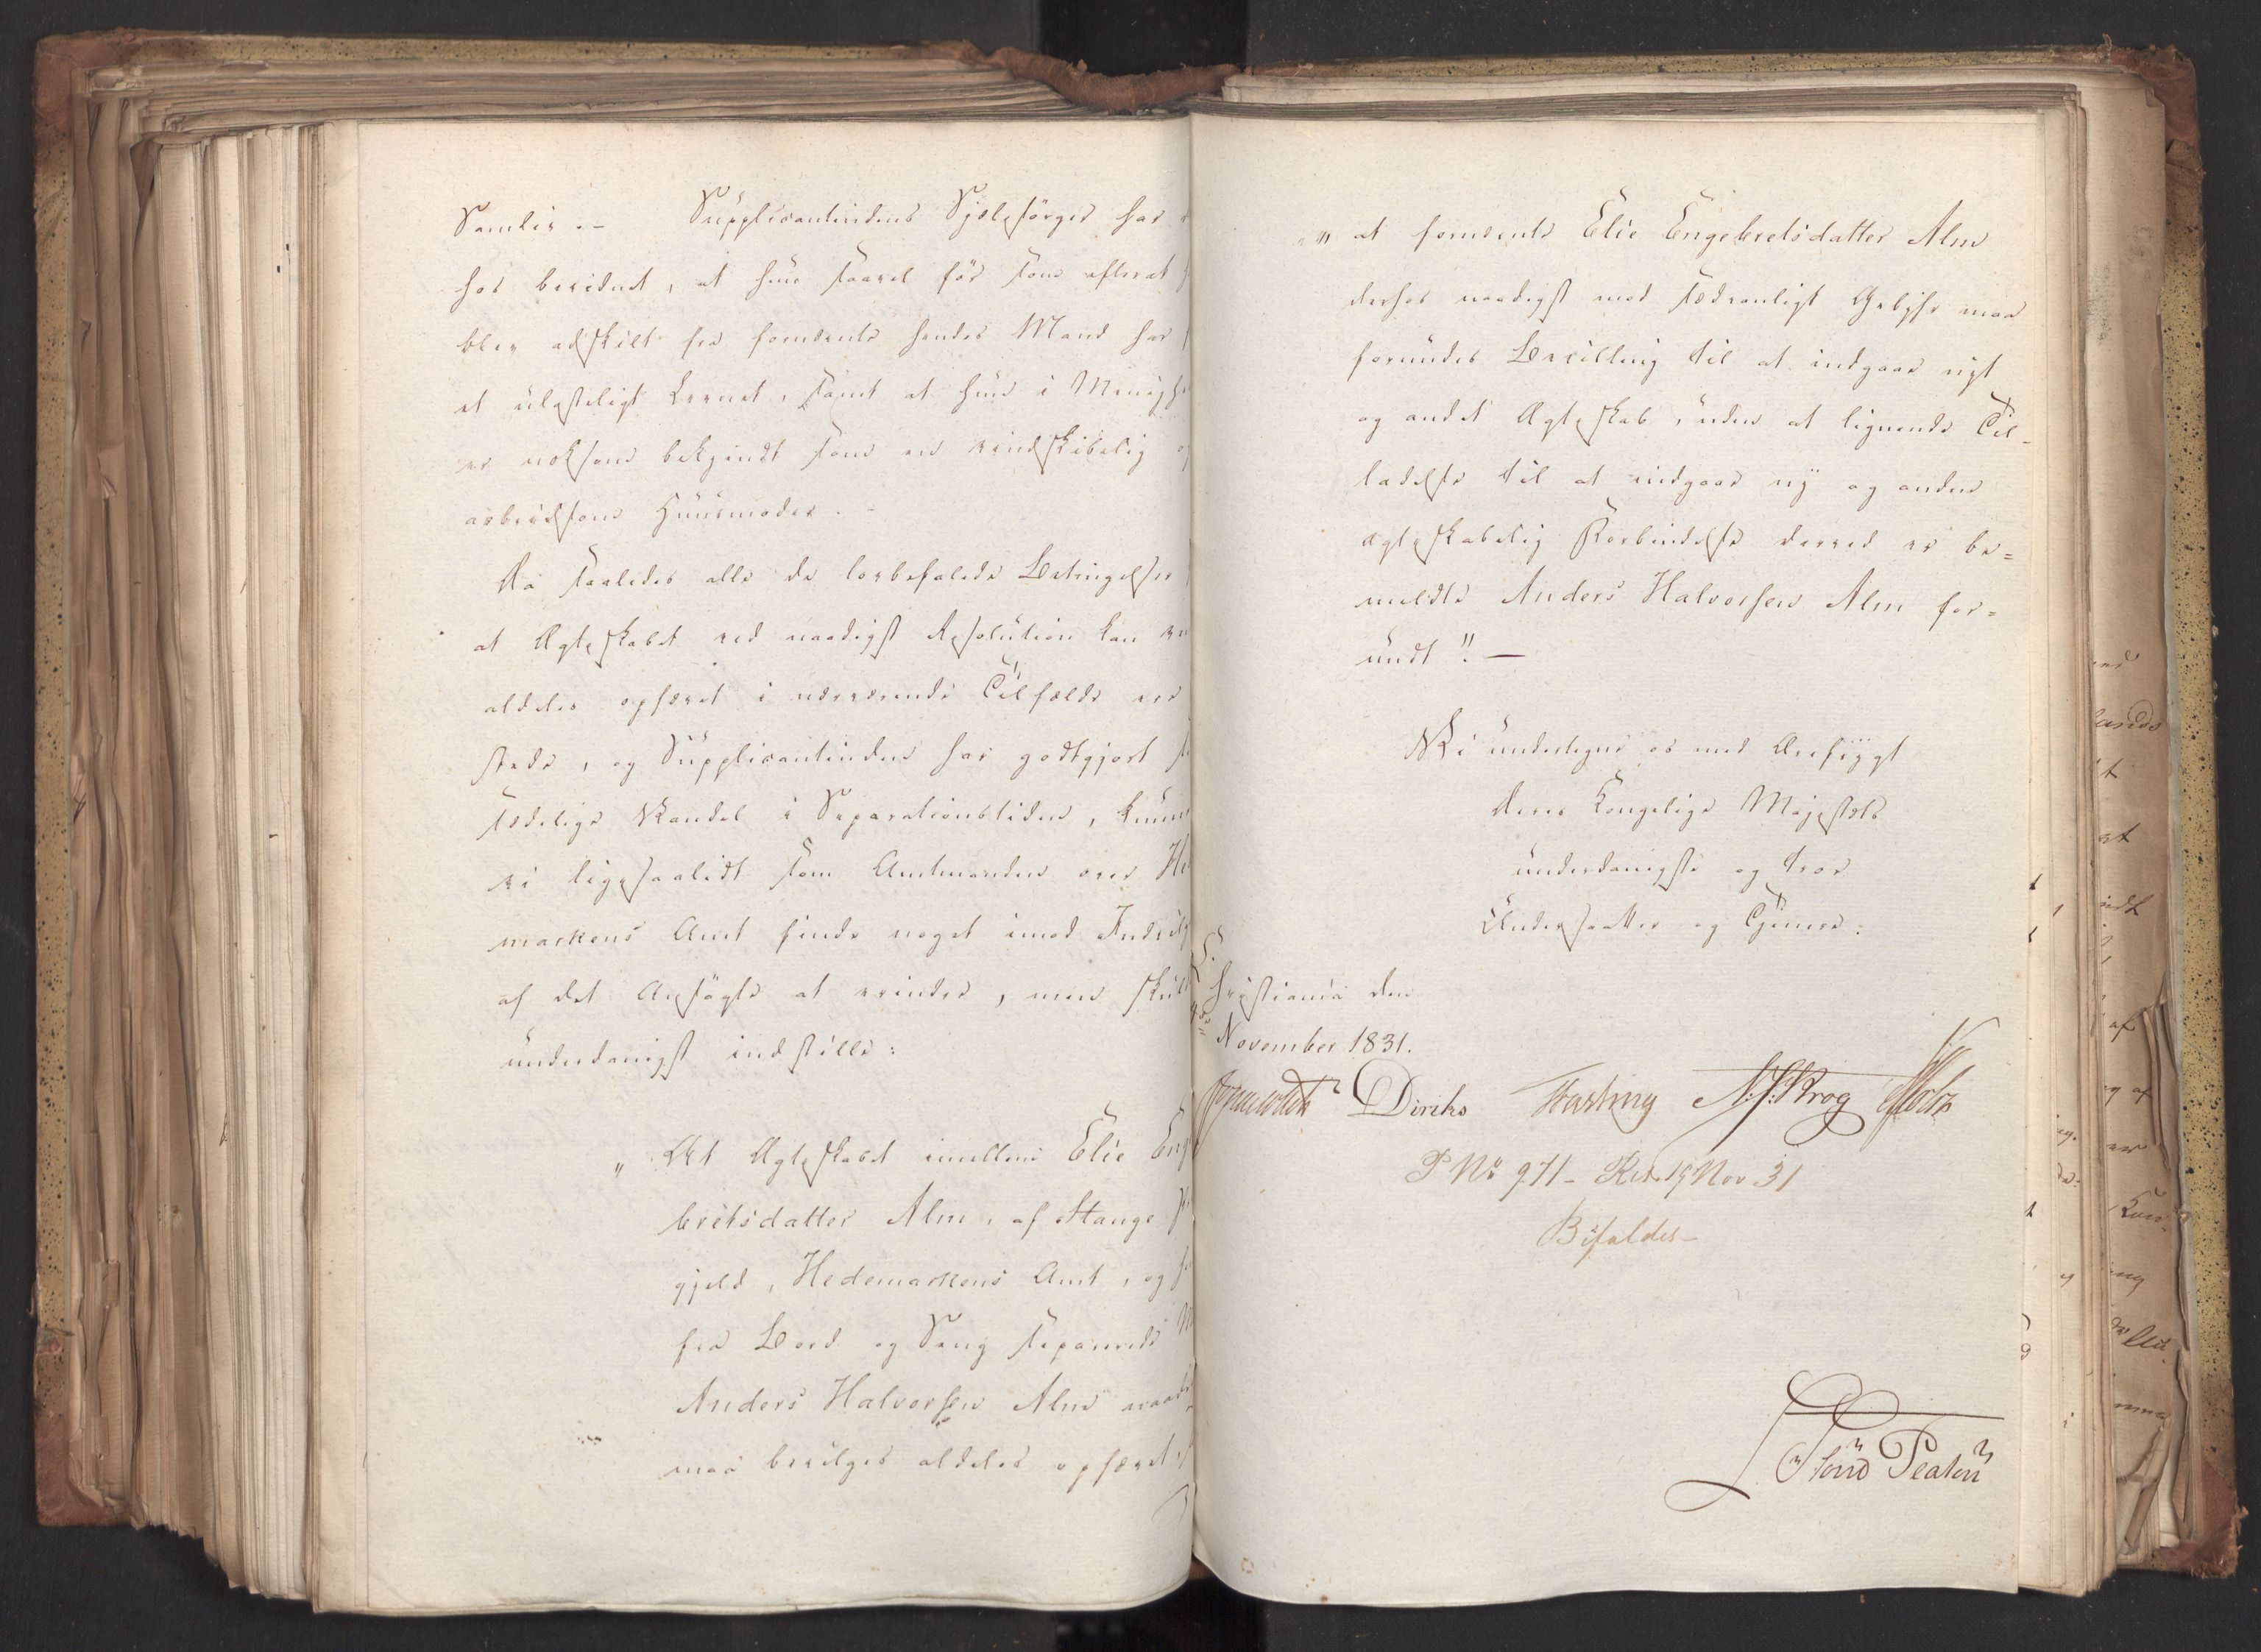 Samlir.– Supplicantindens Sjælesørger har
hos bevidnet, at hun saavel før som efterat
blev adskilt fra fornævnte hendes Mand har
et ulasteligt Levnet, samt at hun i Menighe
er noksom bekjendt som en vindskibelig og
arbeidsom Huusmoder. –
Da saaledes alle de lovbefalede Betingelser
at Ægteskabet ved naadigst Resolution kan
aldeles ophævet i nærværende Tilfælde ere
stede, og Supplicantinden har godtgjort
sædelige Vandel i Separationstiden, kunne
vi ligesaalidt som Amtmanden over He
markens Amt finde noget imod Indvilg
af det Ansøgte at erindre, men skul
underdanigst indstille:
„At Ægteskabet imellem Elie Eng
bretsdatter Alm, af Stange
gjeld, Hedemarkens Amt, og
fra Bord og Seng separerede
Anders Halvorsen Alm naad
maa bevilges aldeles ophævet,
„" at fornævnte Elie Engebretsdatter Alm
derhos naadigst mod sædvanligt Gebyhr maa
forundes Bevilling til at indgaae nyt
og andet Ægteskab, uden at lignende Til-
ladelse til at indgaae ny og anden
ægteskabelig Forbindelse derved er be=
meldte Anders Halvorsen Alm for=
undt". —
Vi undertegne os med Ærefrygt
Deres Kongelige Majestæts
underdanigste og troe
Undersaatter og Tjenere:
Christiania den
November 1831.
Diriks Fasting N. J. Krog Holst
P No 971 – Res. 19 Nov 31
Bifaldes –